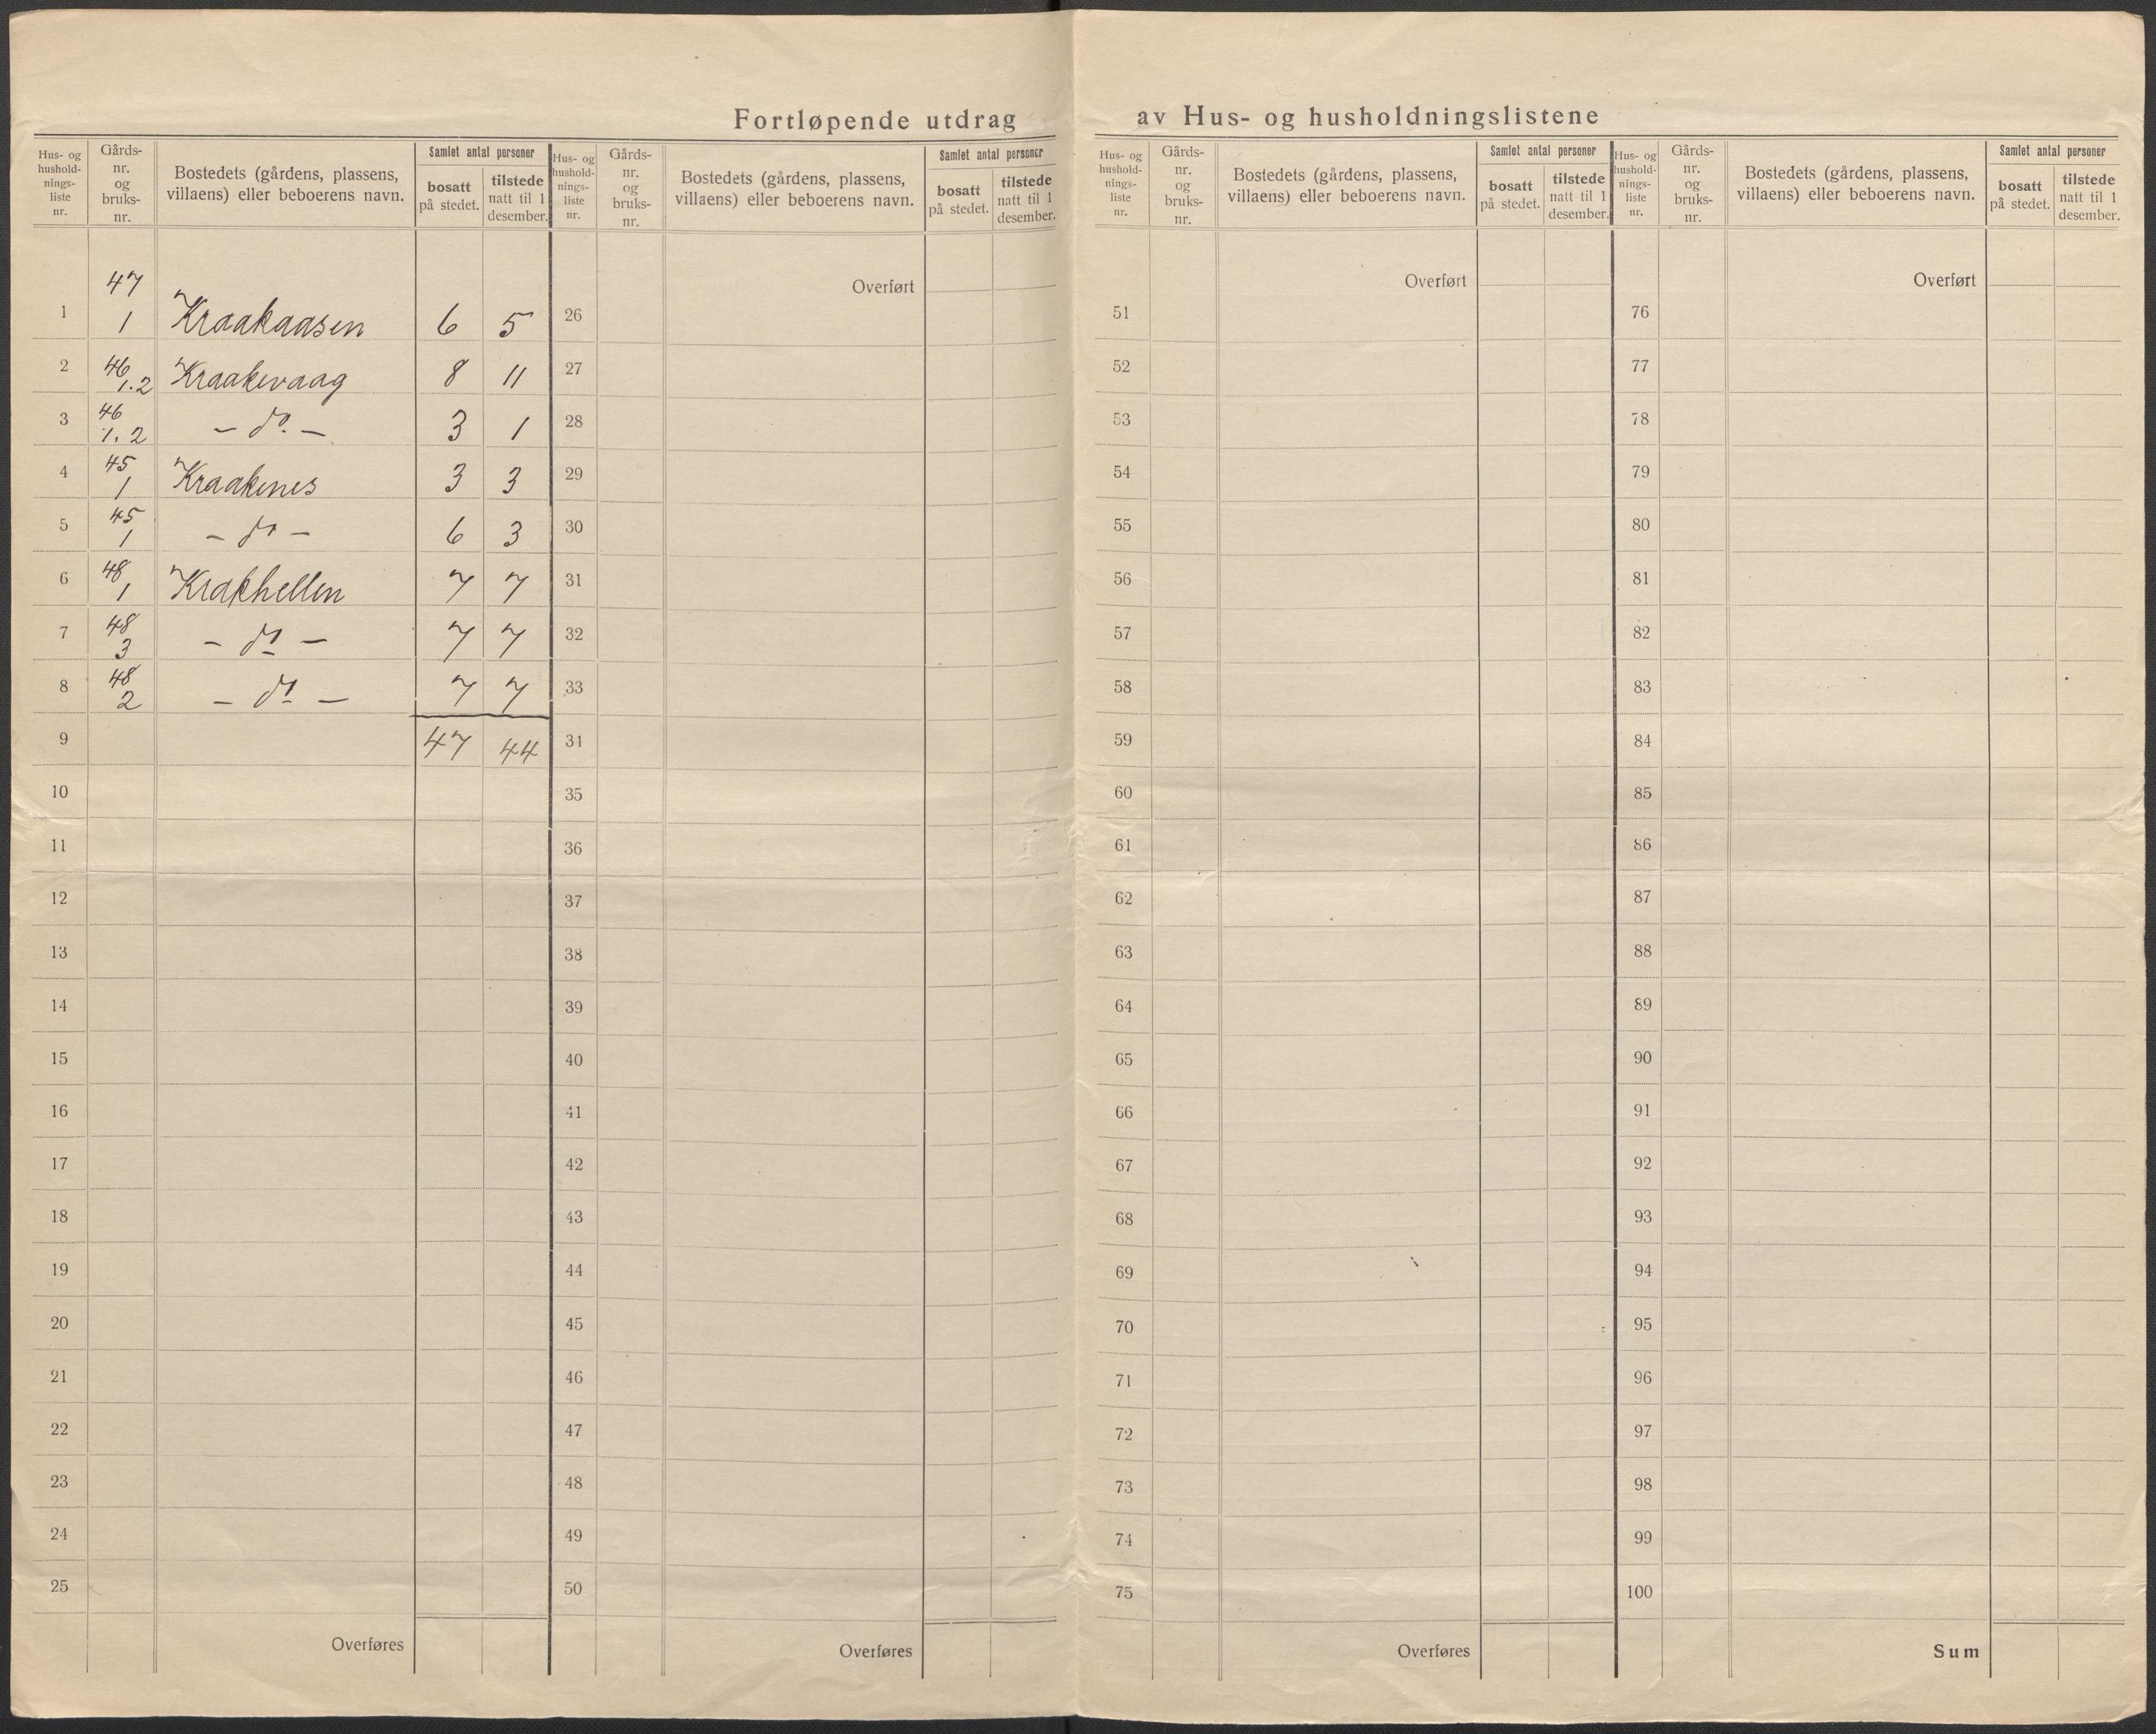 Fortløpende utdrag av Hus- og husholdningslistene
Hus- og hushold-nings-liste nr. Gårds-nr. og bruks-nr. Bostedets (gårdens, plassens, villaens) eller beboerens navn. Samlet antal personer bosatt på stedet. tilstede natt til 1 desember.
1 47 1 Kraakaasen 6 5
2 46 1.2 Kraakevaag 8 11
3 46 1.2 – do. – 3 1
4 45 1 Kraakenes 3 3
5 45 1 – do – 6 3
6 48 1 Krakhellen 7 7
7 48 3 – do – 7 7
8 48 2 – do – 7 7
9 47 44
10
11
12
13
14
15
16
17
18
19
20
21
22
23
24
25
Overføres
Hus- og hushold-nings-liste nr. Gårds-nr. og bruks-nr. Bostedets (gårdens, plassens, villaens) eller beboerens navn. Samlet antal personer bosatt på stedet. tilstede natt til 1 desember.
Overført
26
27
28
29
30
31
32
33
34
35
36
37
38
39
40
41
42
43
44
45
46
47
48
49
50
Overføres
Hus- og hushold-nings-liste nr. Gårds-nr. og bruks-nr. Bostedets (gårdens, plassens, villaens) eller beboerens navn. Samlet antal personer bosatt på stedet. tilstede natt til 1 desember.
Overført
51
52
53
54
55
56
57
58
59
60
61
62
63
64
65
66
67
68
69
70
71
72
73
74
75
Overføres
Hus- og hushold-nings-liste nr. Gårds-nr. og bruks-nr. Bostedets (gårdens, plassens, villaens) eller beboerens navn. Samlet antal personer bosatt på stedet. tilstede natt til 1 desember.
Overført
76
77
78
79
80
81
82
83
84
85
86
87
88
89
90
91
92
93
94
95
96
97
98
99
100
Sum